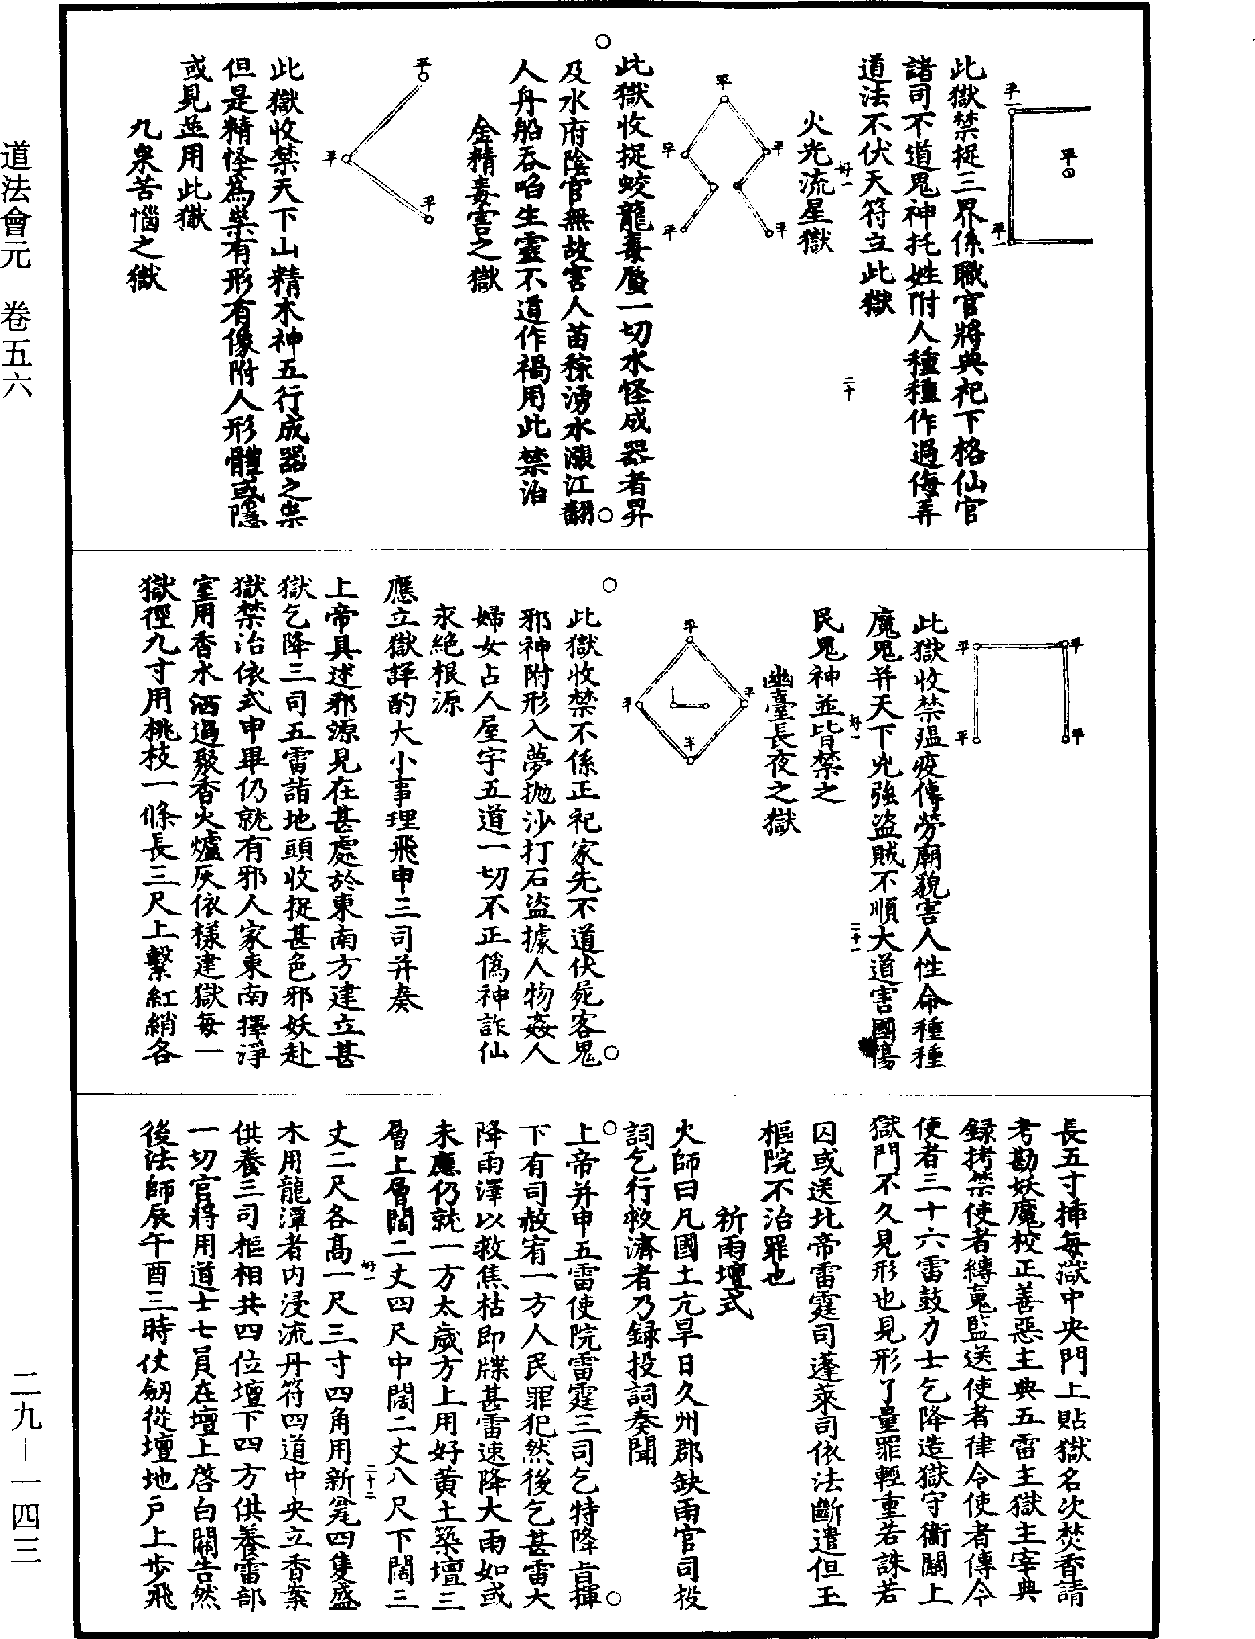 道法會元　卷五六
此獄禁捉三界係職官將典祀下格仙官
諸司不道鬼神托姓附人種種作過侮弄
道法不伏天符立此獄
火光流星獄
此獄收捉蛟龍毒蜃一切水怪成器者昇
及水府陰官無故害人苗稼湧水漲江翻
人舟船吞啗生靈不道作禍用此禁治
金精毒害之獄
此獄收禁天下山精木神五行成器之祟
但是精怪為祟有形有像附人形體或隱
或見並用此獄
九泉苦惱之獄
此獄收禁瘟疫傳勞廟貌害人性命種種
魔鬼并天下兇強盜賊不順大道害國傷
民鬼神並皆禁之
幽臺長夜之獄
此獄收禁不係正祀家先不道伏屍客鬼
邪神附形入夢拋沙打石盜據人物姦人
婦女占人屋宇五道一切不正偽神詐仙
永絕根源
應立獄詳酌大小事理飛申三司并奏
上帝具述邪源見在甚處於東南方建立甚
獄乞降三司五雷詣地頭收捉甚色邪妖赴
獄禁治依式申畢仍就有邪人家東南擇淨
室用香水洒過聚香火爐灰依樣建獄每一
獄徑九寸用桃枝一條長三尺上繫紅綃各
長五寸插每獄中央門上貼獄名次焚香請
考勘妖魔校正善惡主典五雷主獄主宰典
録拷禁使者縛鬼監送使者律令使者傳令
使者三十六雷鼓力士乞降造獄守衛關上
獄門不久見形也見形了量罪輕重若誅若
囚或送北帝雷霆司蓬萊司依法斷遣但玉
樞院不治罪也
祈雨壇式
火師曰凡國土亢旱日久州郡缺雨官司投
詞乞行救濟者乃録投詞奏聞
上帝并申五雷使院雷霆三司乞特降旨揮
下有司赦宥一方人民罪犯然後乞甚雷大
降雨澤以救焦枯即牒甚雷速降大雨如或
未應仍就一方太歲方上用好黃土築壇三
層上層闊二丈四尺中闊二丈八尺下闊三
丈二尺各高一尺三寸四角用新瓮四隻盛
水用龍潭者內浸流丹符四道中央立香案
供養三司樞相共四位壇下四方供養雷部
一切官將用道士七員在壇上啓白關告然
後法師辰午酉三時仗劒從壇地戶上步飛
二九—一四三